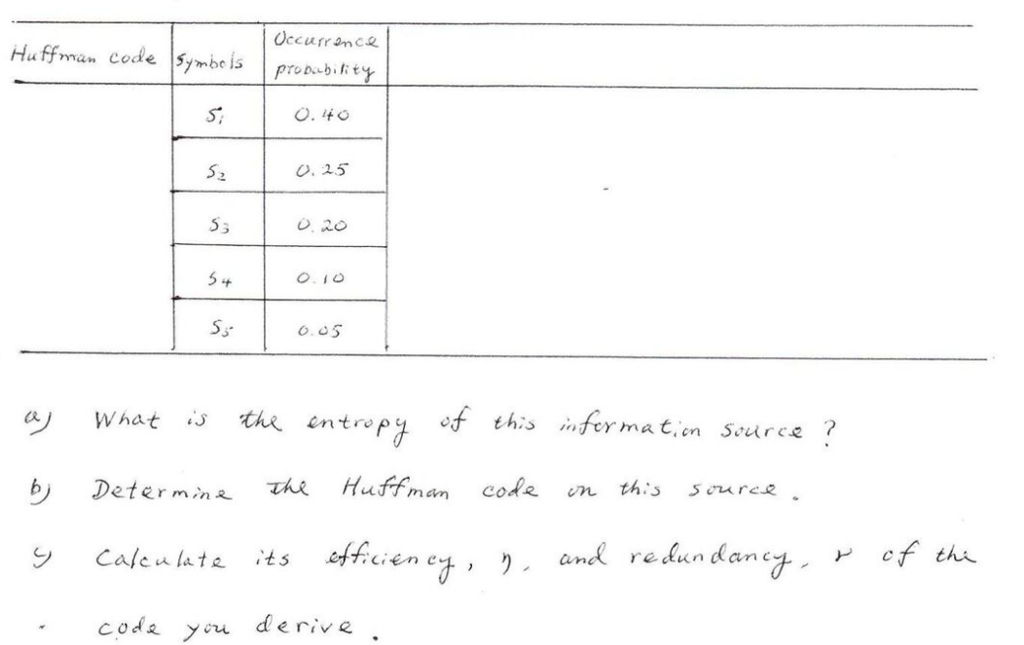 Huffman code Symbols Occurrence probability
S1 0.40
S2 0.25
S3 0.20
S4 0.10
S5 0.05
a) What is the entropy of this information source ?
b) Determine the Huffman code on this source.
c) Calculate its efficiency, η, and redundancy, r of the
code you derive.